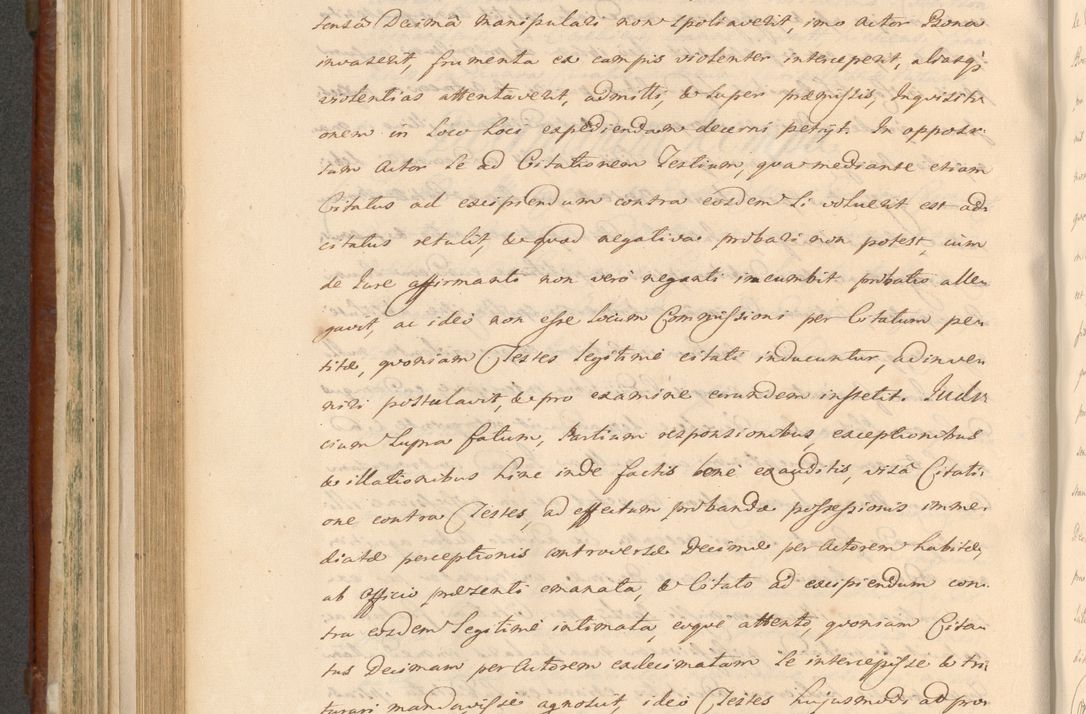 sensâ Decimâ manipulari non spoliaverit, imo Actor Bona
invaserit, frumenta ex campis violenter interceperit, aliasq;
violentias attentaverit, admitti, & super præmissis, Inquisiti-
onem in Loco Loci expediendam decerni petijt. In opposi-
tum Actor se ad Citationem Testium, qua mediante etiam
Citatus ad excipiendum contra eosdem si voluerit est ad-
citatus retulit, & quod negativa probari non potest, cum
de Jure affirmanti non vero neganti incumbit probatio alle-
gavit, ac ideo non esse locum Commissioni per Citatum pe-
titæ, quoniam Testes legitimè citati inducuntur, adinve-
niri postulavit, & pro examine eorundem institit. Judi-
cium Supra fatum, Partium responsionibus exceptionibus
& illationibus hinc inde factis bene exauditis, visâ Citati-
one contra Testes, ad effectum probandæ possessionis imme-
diatæ perceptionis controversæ Decimæ per Actorem habitæ,
ab Officio præsenti emanata, & Citato ad excipiendum con-
tra eosdem legitimè intimata, eoque attento, quoniam Cita-
tus Decimam per Actorem exdecimatam se intercepisse & tri-
turari mandavisse agnoscit, ideo Testes hujusmodi ad pro-